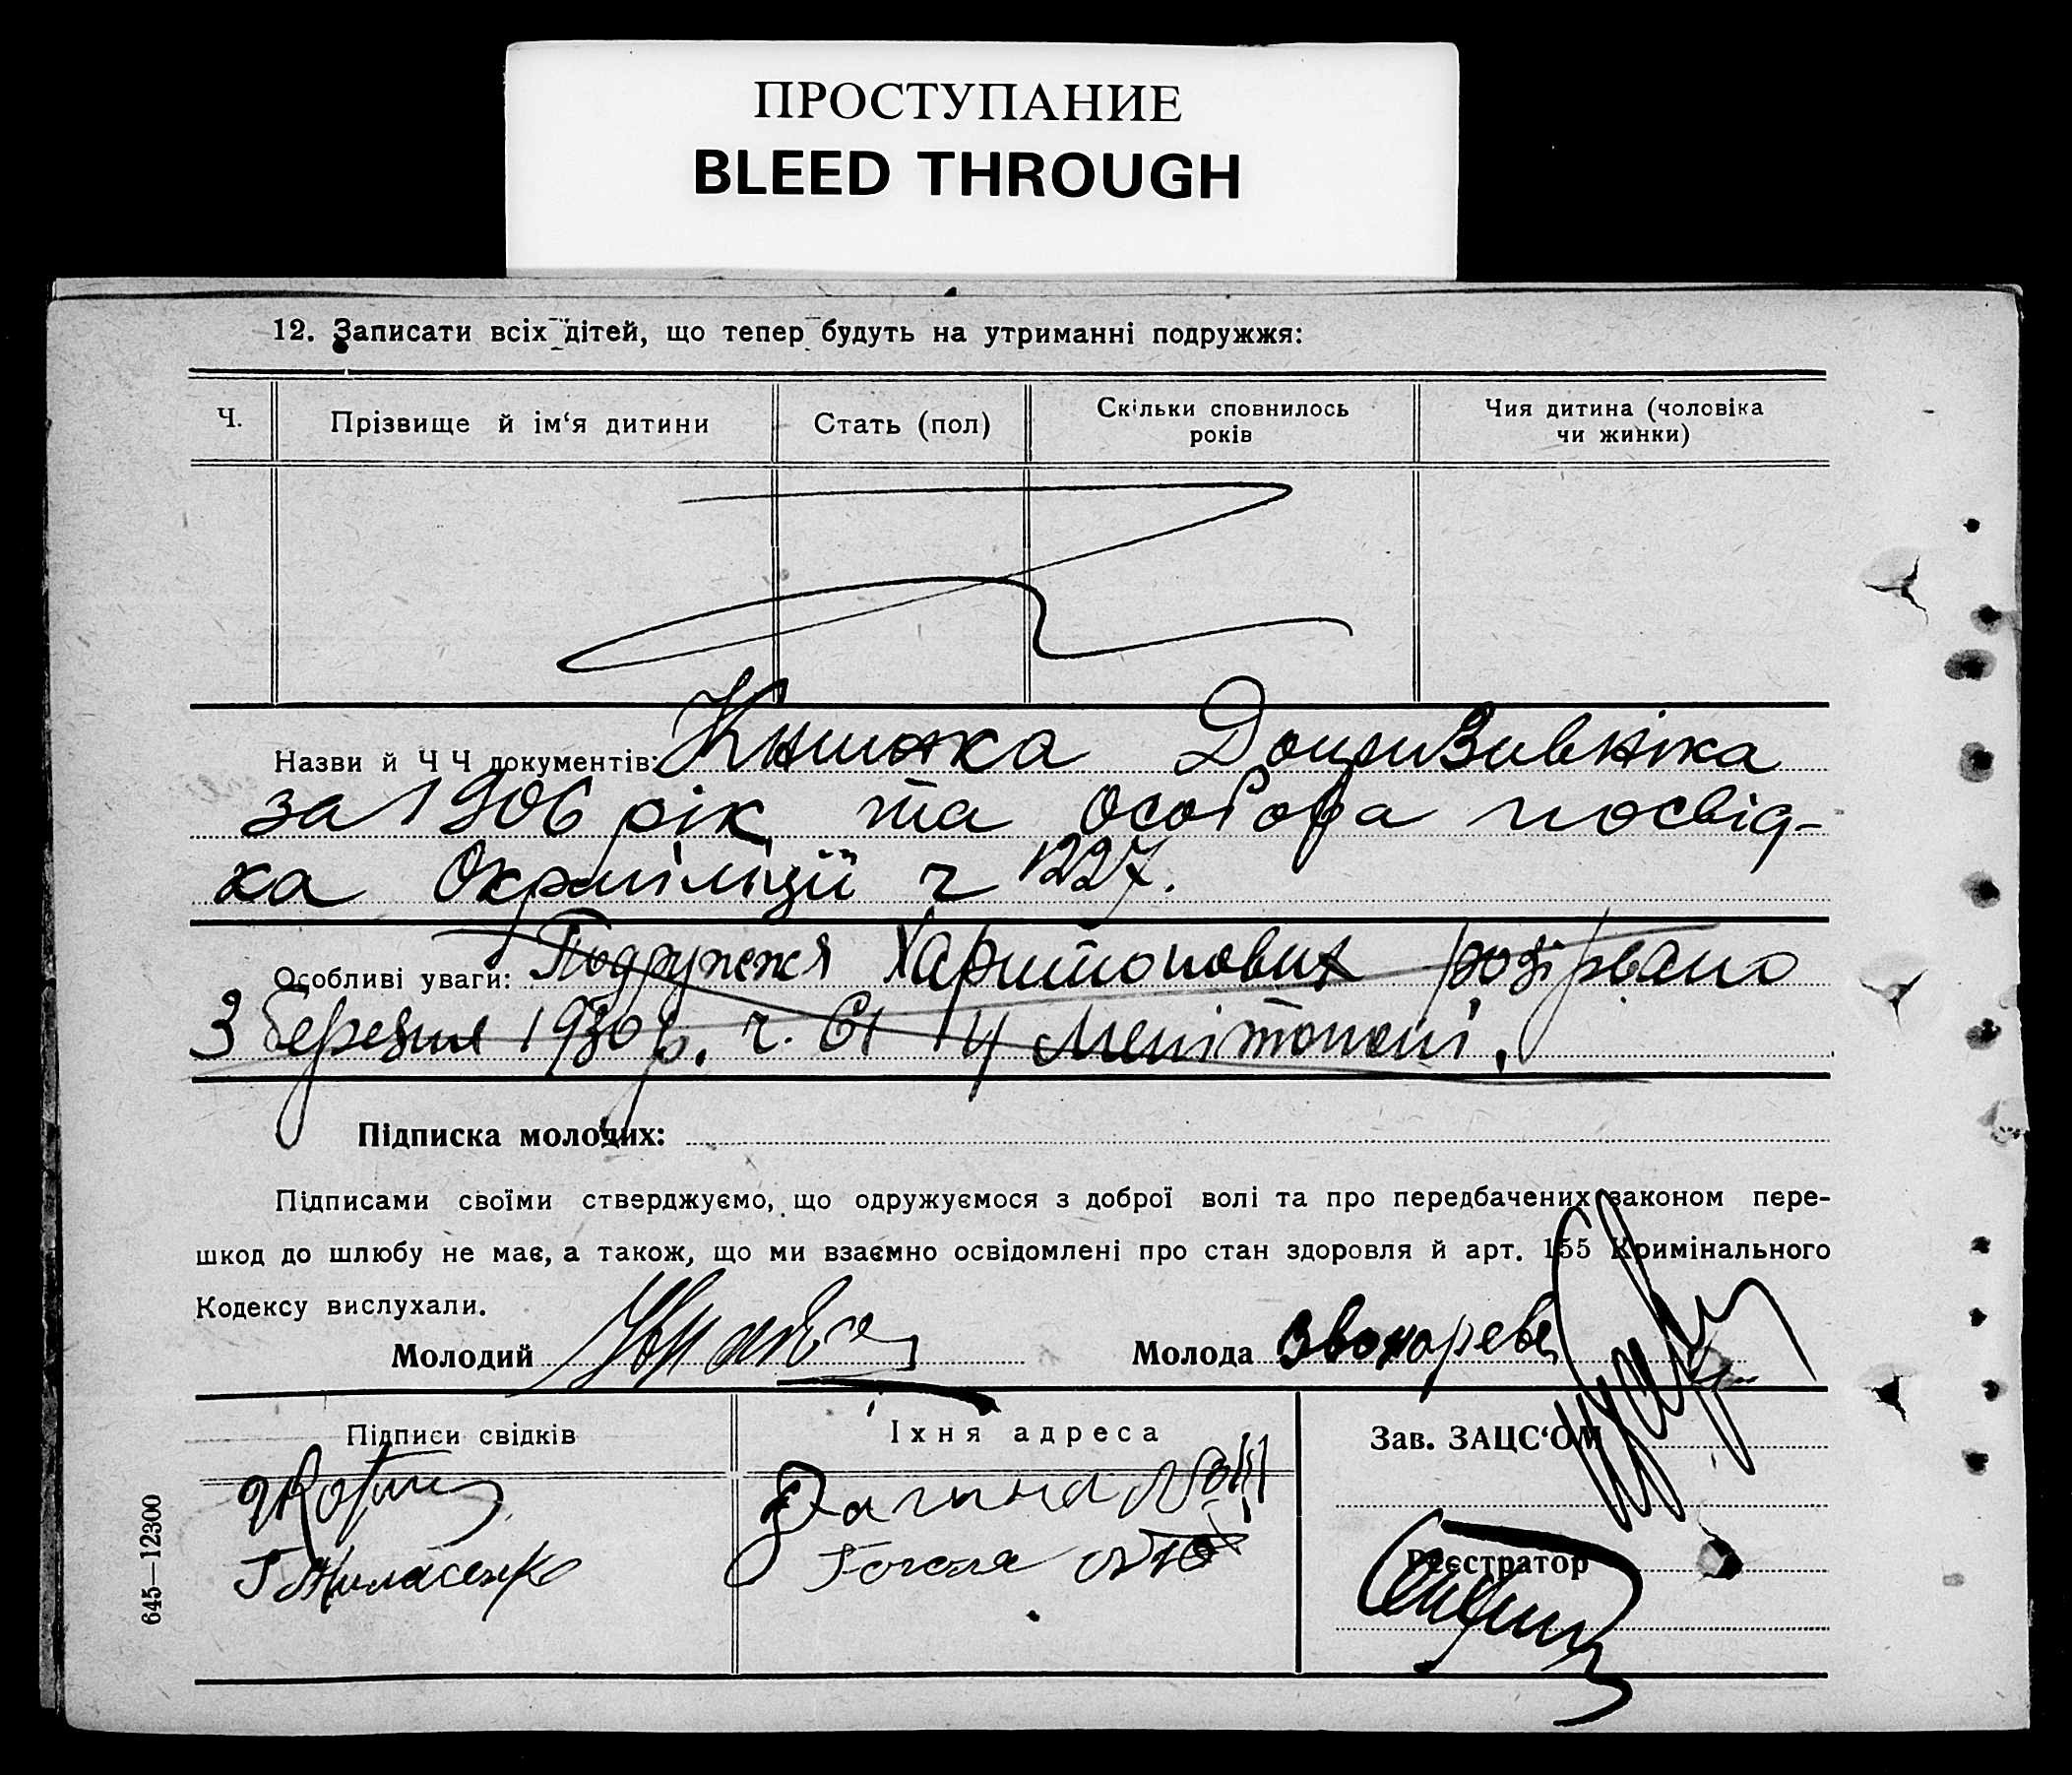 ПРОСТУПАНИЕ
BLEED THROUGH
12. Записати всіх дітей, що тепер будуть на утриманні подружжя:
Ч.
Прізвище й ім‘я дитини
Стать (пол)
Скільки сповнилось
років
Чия дитина (чоловіка
чи жинки)
Назви й Ч Ч документів: Книжка Допризивніка
за 1906 рік та особова посвід-
ка Окрміліції ч 1227.
Особливі уваги: Подружжя Харитонових розірвано
3 березня 1930 р. ч. 61 у Мелітополі.
Підписка молодих:
Підписами своїми стверджуємо, що одружуємося з доброї волі та про передбачених законом пере-
шкод до шлюбу не має, а також, що ми взаємно освідомлені про стан здоровля й арт. 155 Кримінального
Кодексу вислухали.
Молодий
Молода Звонарева
Підписи свідків
Їхня адреса
Зав. ЗАЦС‘ОМ
Гоголя
Реєстратор
645—12300